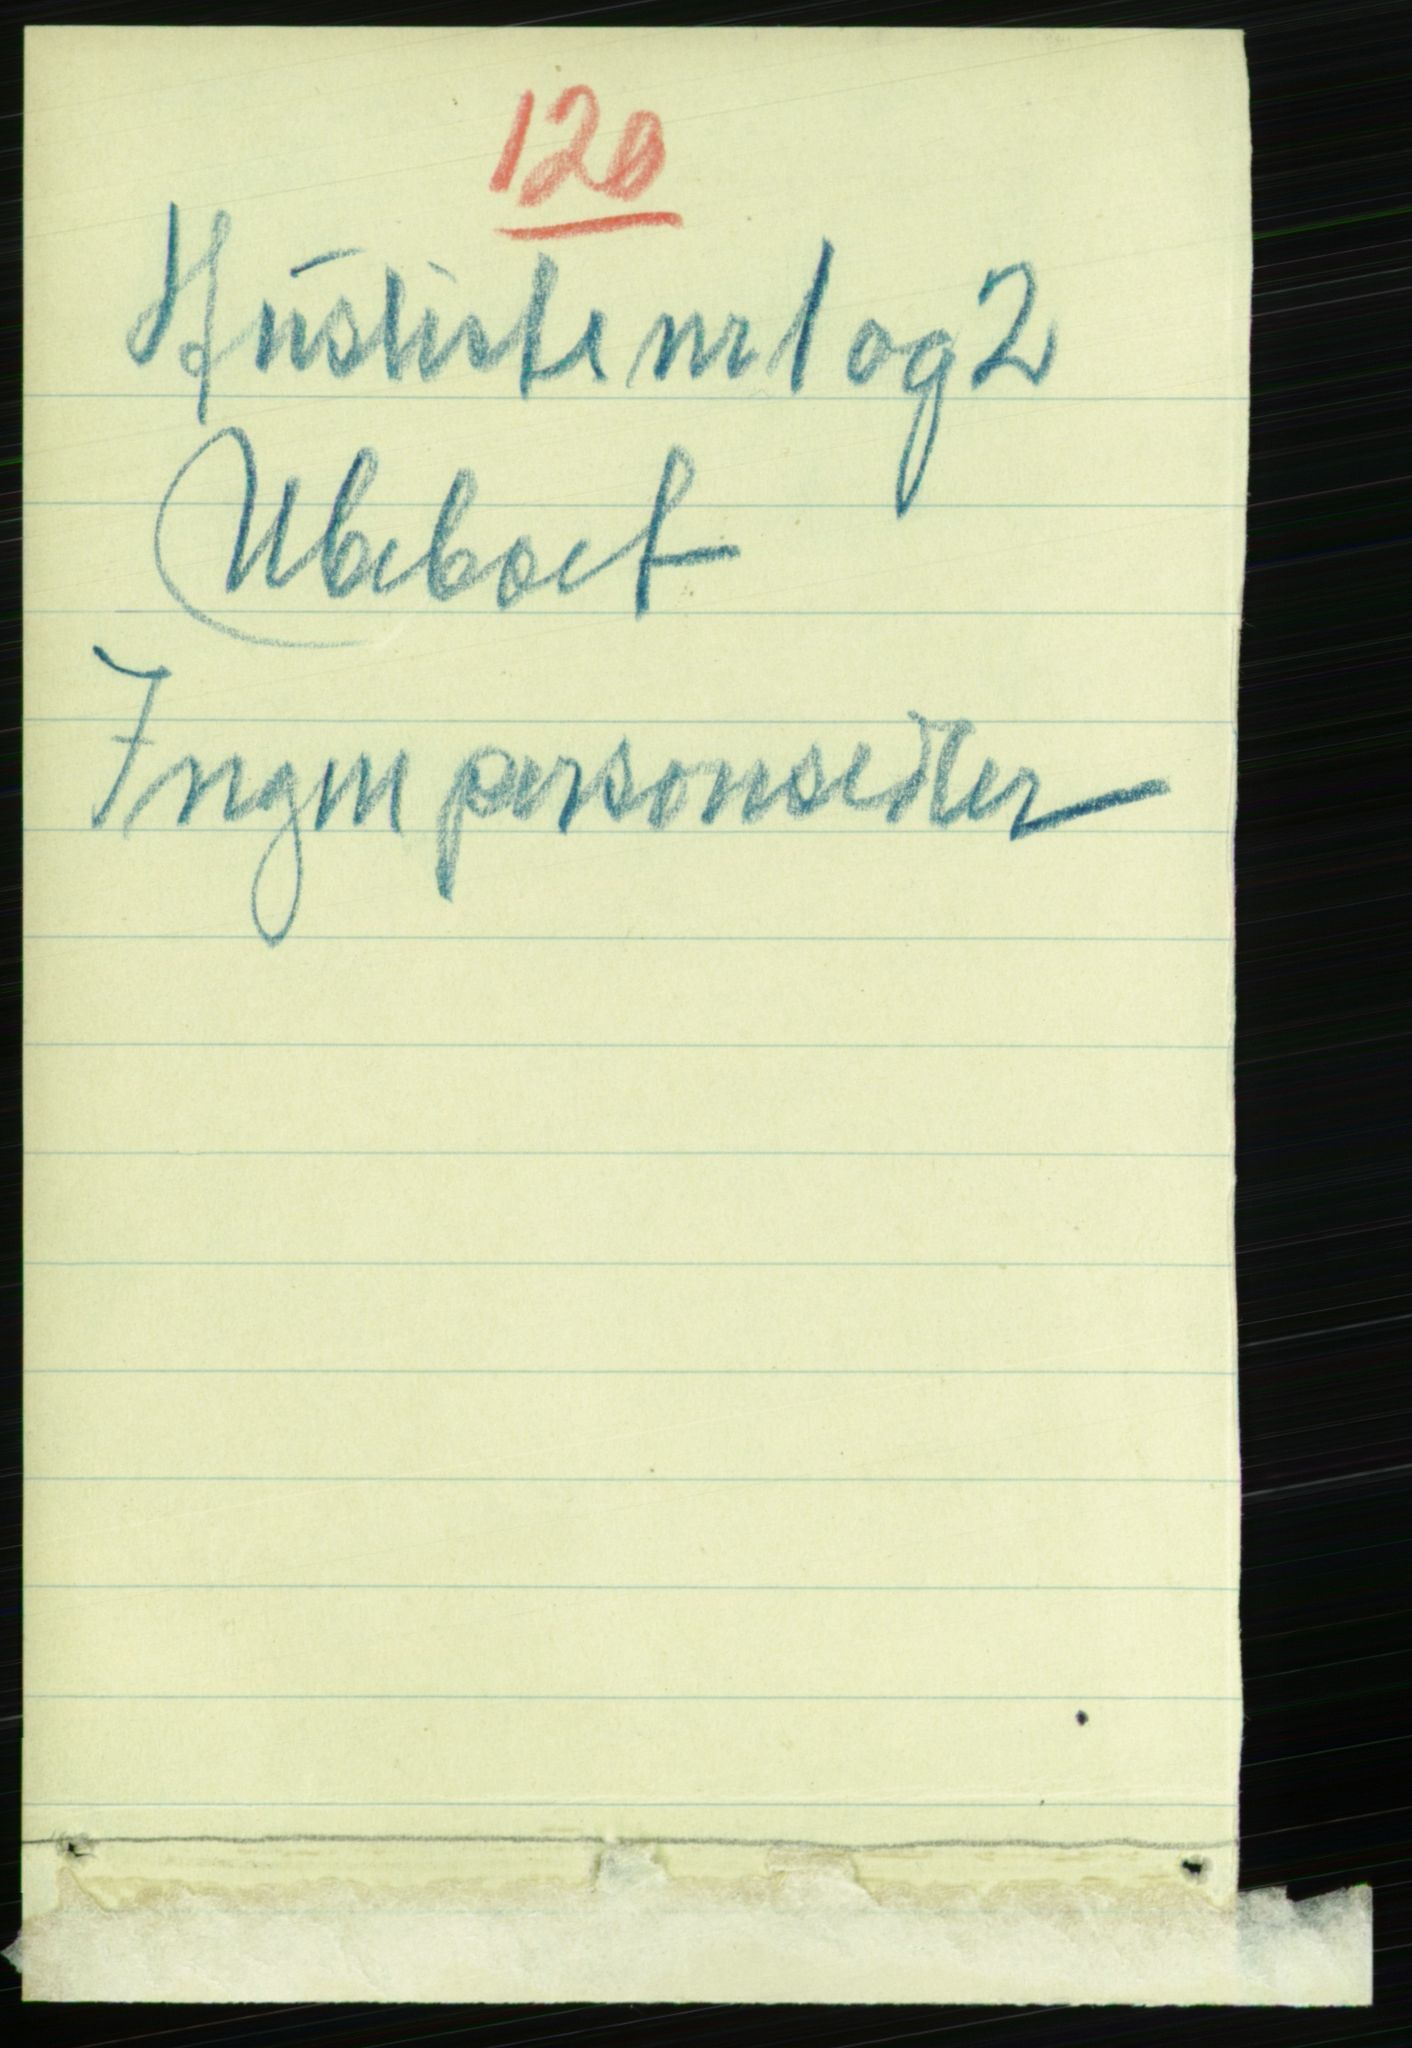 120
Husliste nr 1 og 2
Ubeboet
Ingen personsedler